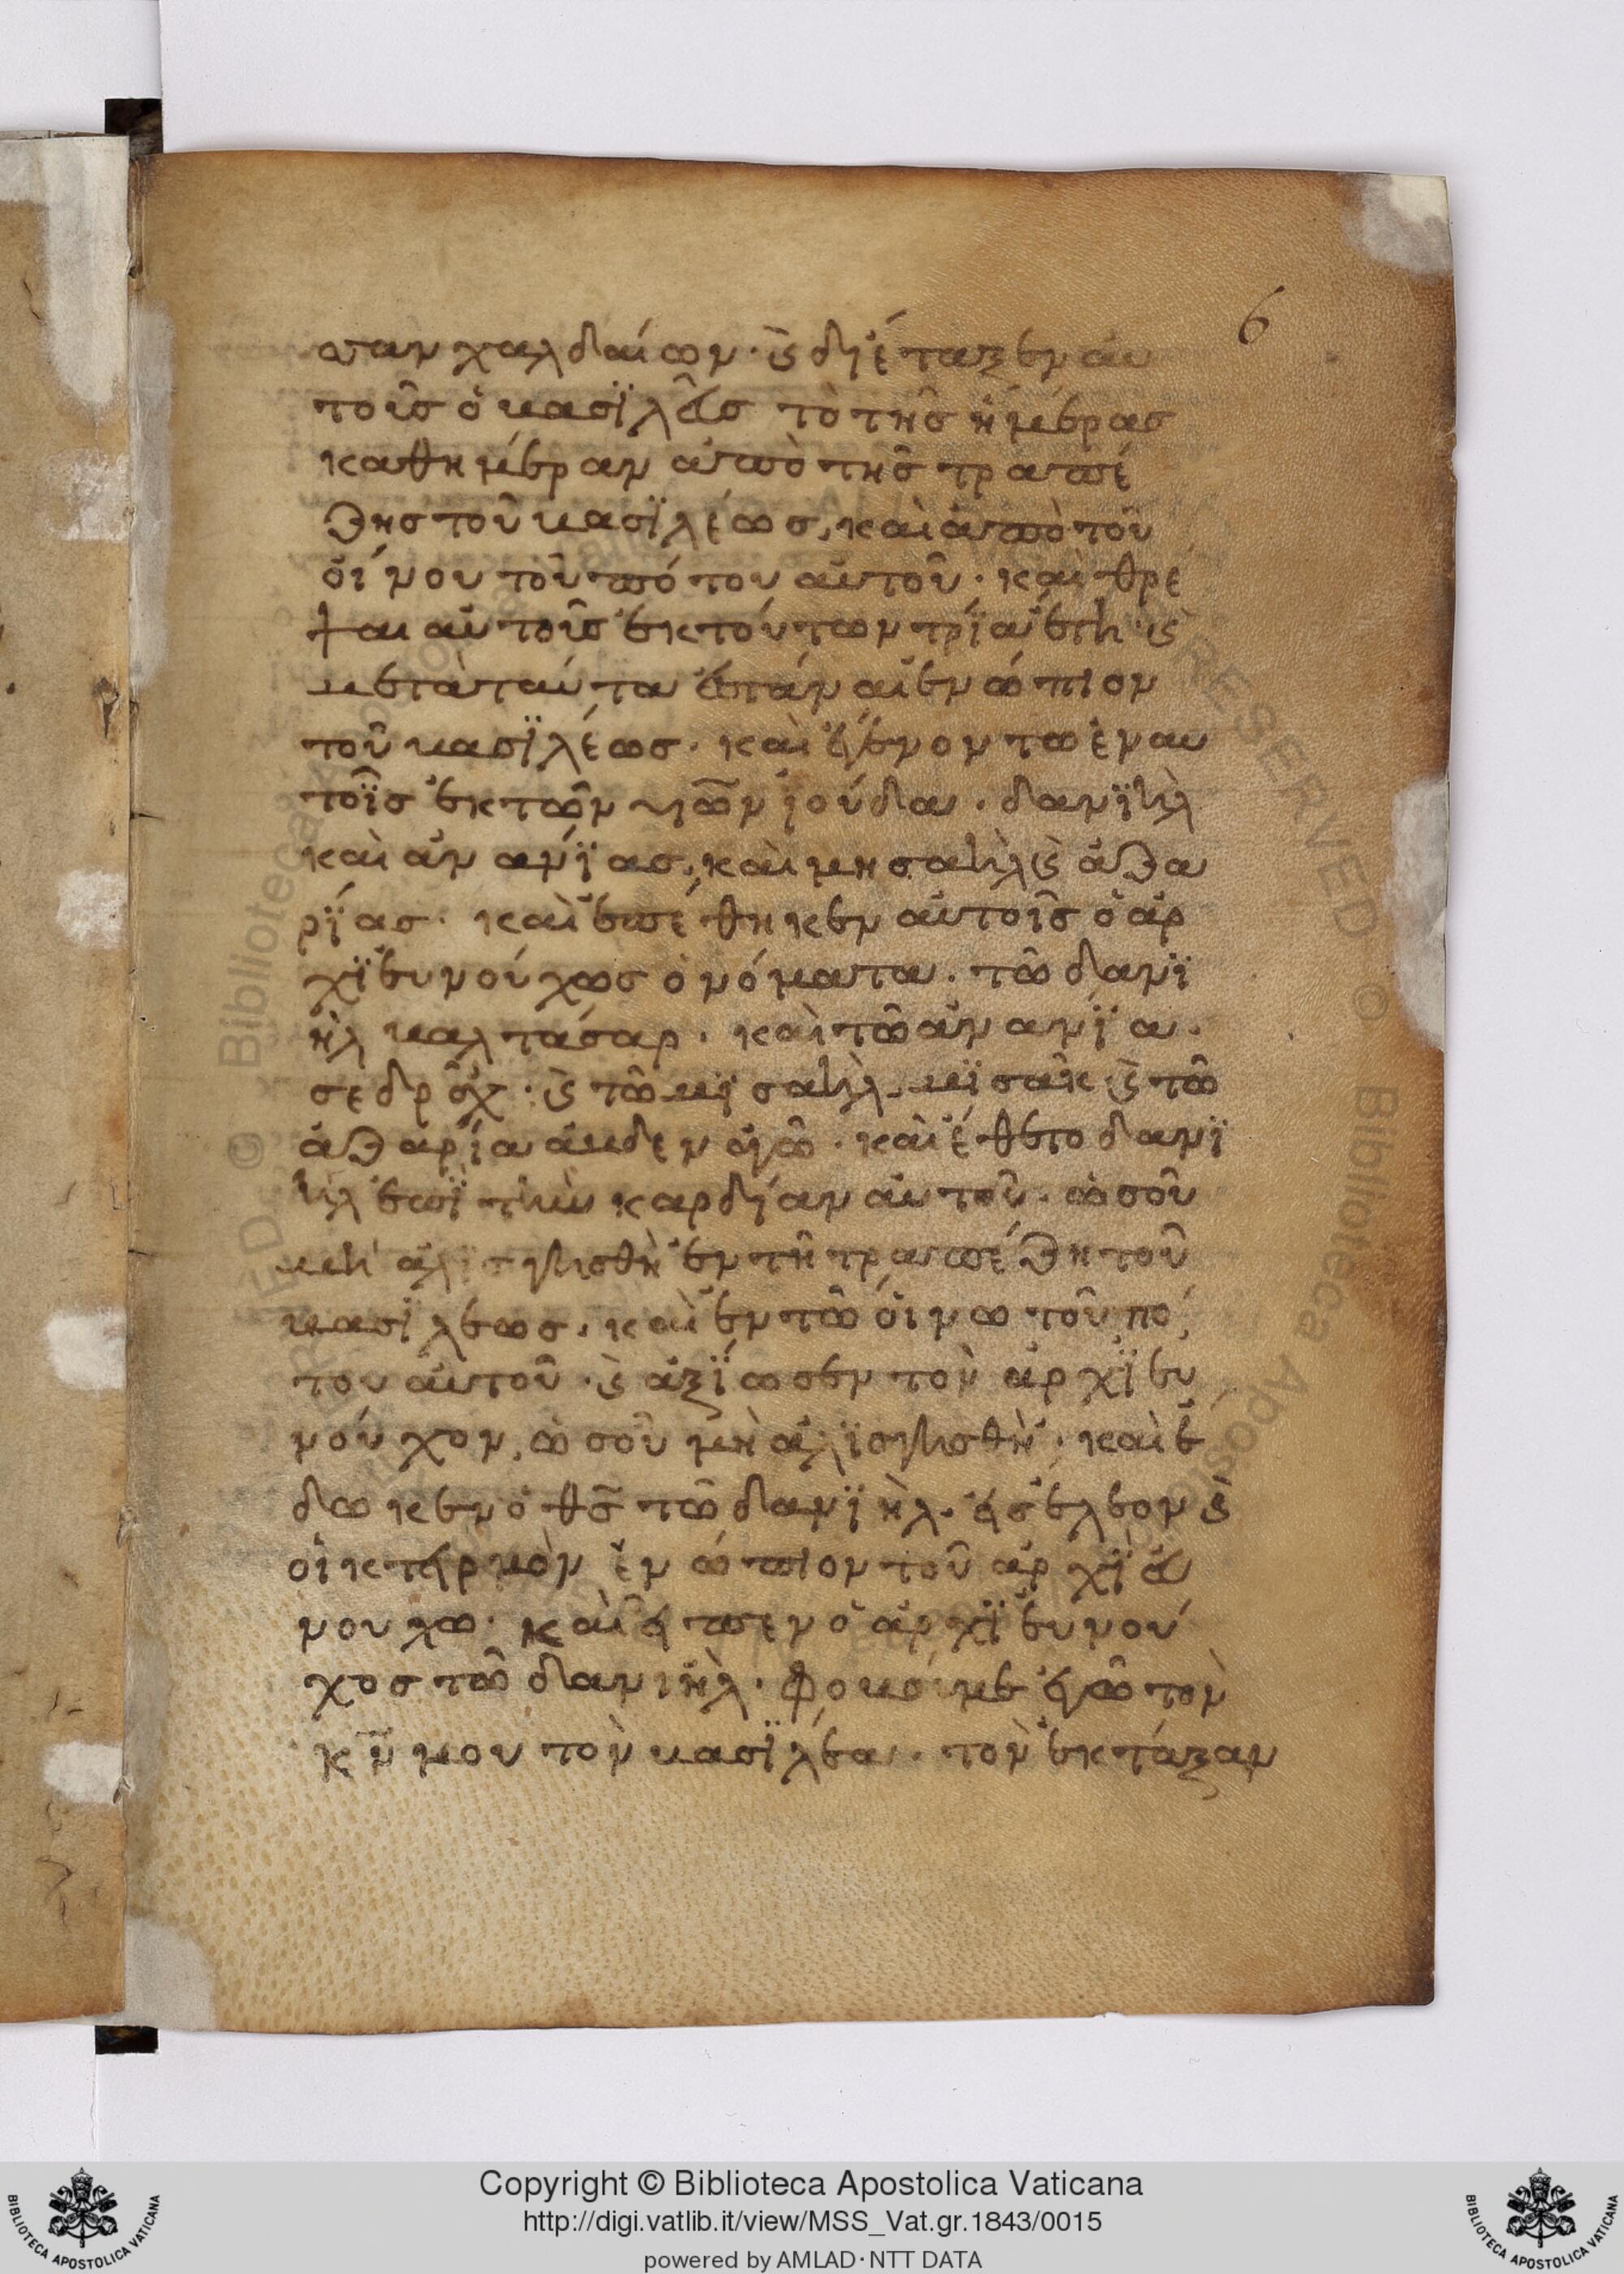 6
σαν χαλδαίων· ϗ διέταξεν αυ
τοῖς ὁ βασϊλεῦς τὸ τῆς ἡμέρας
καθημέραν ἀπὸ τῆς τραπέ
ζης τοῦ βασϊλέως, καὶ ἀπὸ τοῦ
οἴνου τοῦ πότου αὐτοῦ· καὶ θρέ
ψαι αὐτοῦς ἐκτούτων τρϊα ἔτη· ϗ
μετὰ ταύτα ἐστάναι ἐνώπιον
τοῦ βασϊλέως· καὶ ἐγένοντω ἐν αυ
τοῖς ἐκ τῶν υἱῶν ἰούδα· δανϊὴλ
καὶ ἀνανΐας, καὶ μησαὴλ ϗ ἀζα
ρΐας· καὶ ἐπέθηκεν αὐτοῖς ὁ ἀρ
χϊευνούχως ὀνόματα· τῶ δανϊ
ὴλ βαλτάσαρ· καὶ τῶ ἀνανΐα·
σεδρᾶχ· ϗ τῶ μϊσαὴλ μϊσᾶκ· ϗ τῶ
ἀζαρία ἀβδεναγῶ· καὶ ἔθετο δανϊ
ὴλ ἐπϊ τὴν καρδίαν αὐτοῦ· ὡς οὐ
μὴ ἀλισγησθὴ ἐν τῆ τραπέζη τοῦ
βασϊλεως· καὶ ἐν τῶ οἴνω τοῦ πό
του αὐτοῦ· ϗ ἀξΐωσεν τὸν ἀρχϊευ
νούχον, ὡς οὐ μὴ ἀλϊσγησθὴ· καὶ ἔ
δωκεν ὁ θς τῶ δανϊὴλ· εἰς ἔλεον ϗ
οἰκτειρμὸν ἐνώπιον τοῦ ἀρχϊευ
νουχω· καὶ εἶπεν ὁ ἀρχϊευνού
χος τῶ δανιὴλ· φοβούμε ἐγῶ τὸν
κν μου τὸν βασϊλέα· τὸν ἐκτάξαν
Copyright © Biblioteca Apostolica Vaticana
http://digi.vatlib.it/view/MSS_Vat.gr.1843/0015
powered by AMLAD·NTT DATA
BIBLIOTECA APOSTOLICA VATICANA
BIBLIOTECA APOSTOLICA VATICANA